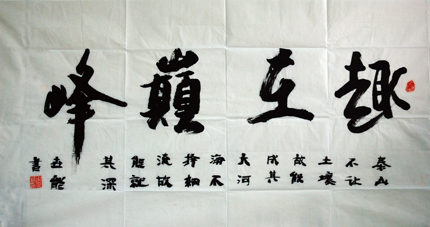 趣在巅峰
泰山
不让
土壤
故能
成其
大河
海不
择细
流故
能就
其深
書